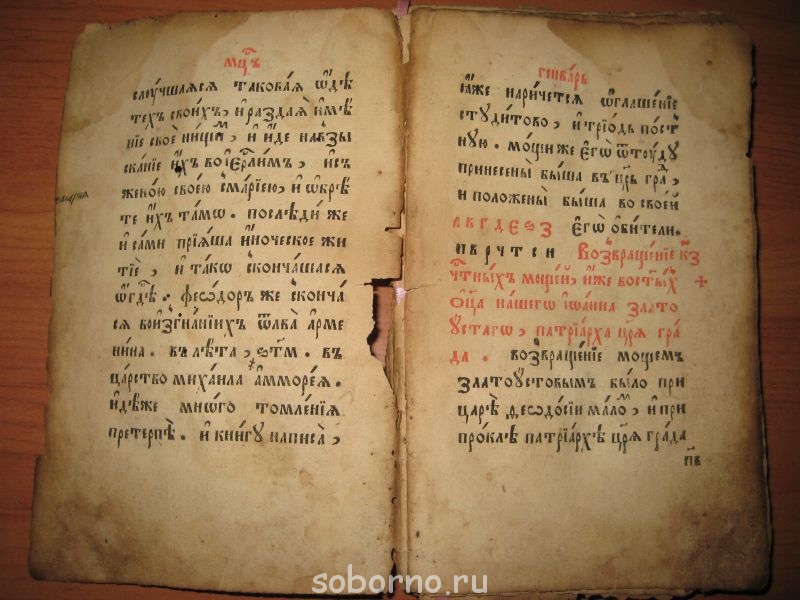 мц҇ъ
слоу́чшаяся такова́я ѿ дѣ́
техъ свои́хъ, и҆ раздая̀ и҆мѣ́
нїе своѐ ни́щим, и҆ и҆́де на взы
ска́нїе и҆́хъ во і҆ер҇лимъ, и҆ съ
жено́ю свое́ю с марі́ею, и҆ ѡ҆брѣ́
те и҆́хъ та́мѡ. послѣди́ же
и҆ са́ми прїя́ша и҆́ноческое жи
тїѐ, и҆ та́кѡ сконча́шася
ѡ҆ г҇дѣ. ѳео́дор же сконча́
ся во и҆згна́нїихъ ѿ лва̀ а҆рме
нина. въ лѣ́та, ҂ѕт҃м. въ
ца́рство михаи́ла а҆ммо́рея.
и҆дѣ́же мно́го томле́нїя
претерпѣ̀. и҆ кни́гу написа̀,
генва́рь
ꙗ҆́же нарича́ется ѡ҆глаше́нїе
студи́тово, и҆ трїо́дь по́ст
ную. мо́щи же є҆гѡ̀ ѿтоу́ду
принесены̀ бы́ша в ца́рь гра́д,
и҆ положены̀ бы́ша во свое́й
а в г д е ѕ з є҆гѡ̀ ѻ҆би́тели.
п в р ч т с и Возвраще́нїе к҃з
чтⷭ҇ны́хъ моще́й, и҆́же во ст҃ы́хъ +
ѻ҆ц҃а̀ на́шегѡ і҆ѡа́нна злато
у́стагѡ, патрїа́рха ц҃ря гра́
да. возвраще́нїе моще́мъ
златоу́стовымъ бы́ло при
царѣ̀ ѳеодо́сїи ма́лом, и҆ при
про́клѣ патрїа́рхѣ ц҃ря гра́да
п҃в
soborno.ru